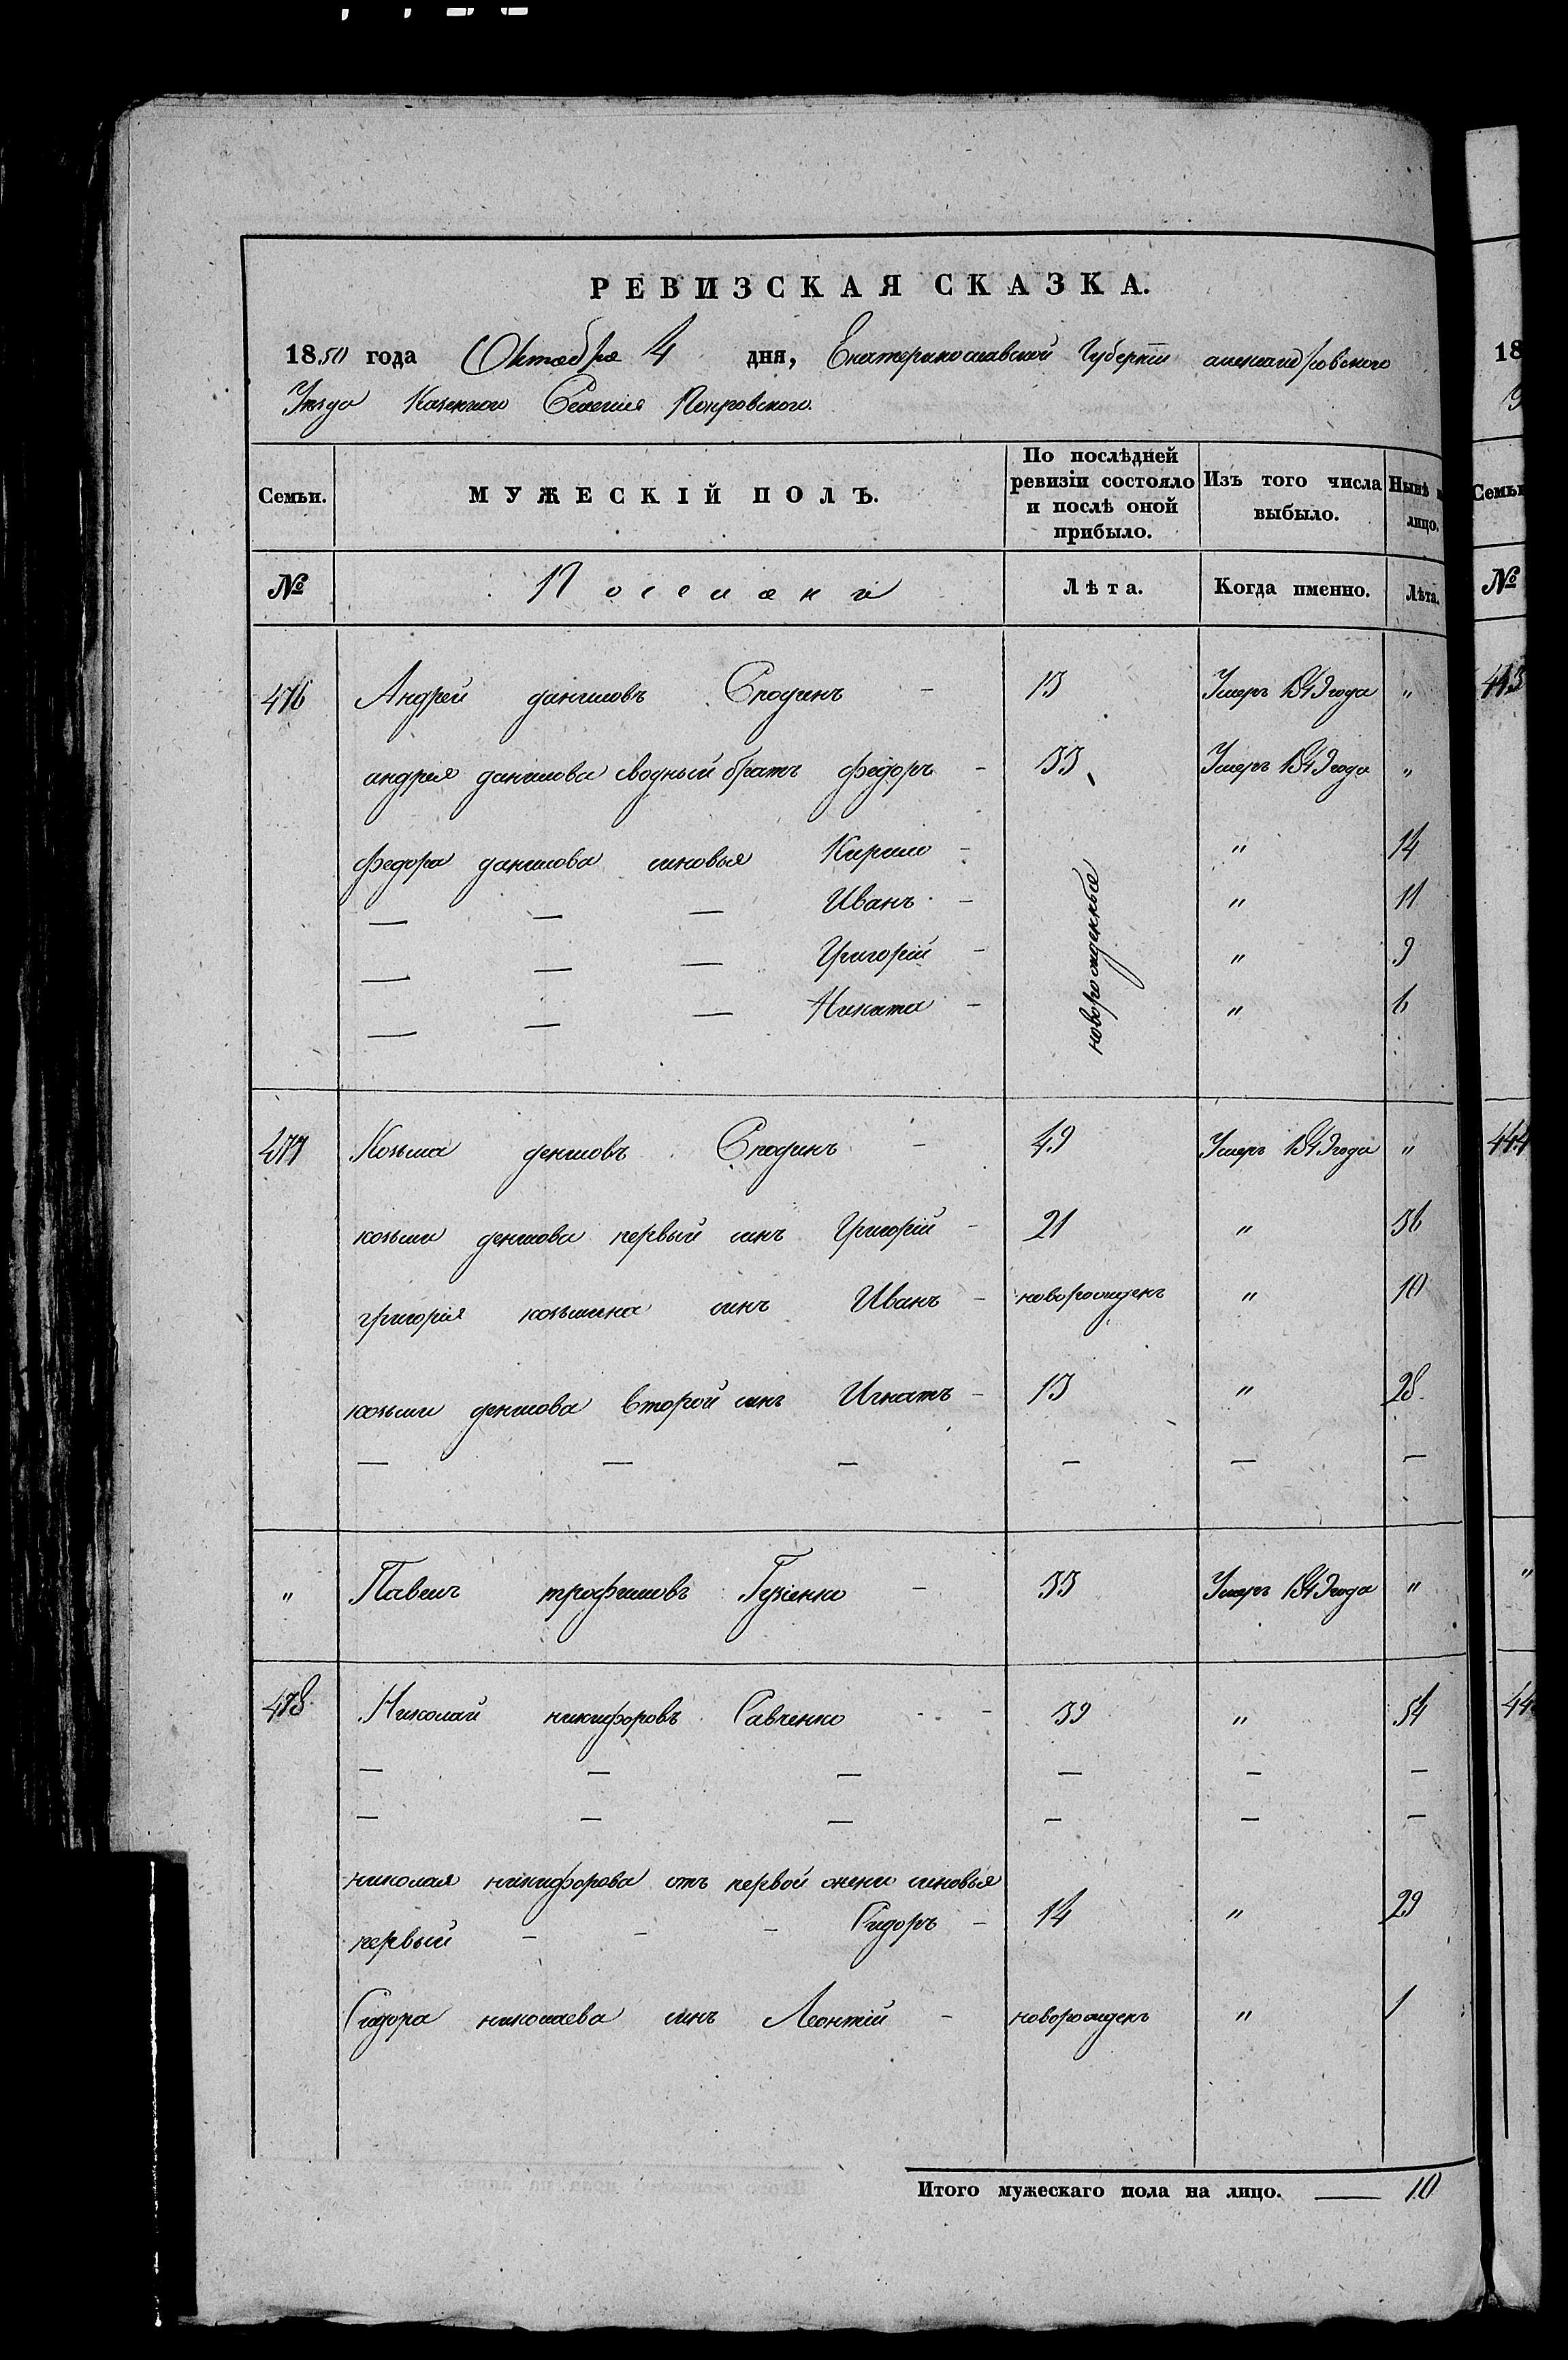 РЕВИЗСКАЯ СКАЗКА.
1850 года Октября 4 дня, Екатеринославской Губернiи александровского
Уезда Казенного Селенiя Покровского.
Семьи. МУЖЕСКІЙ ПОЛЪ. По послѣдней ревизіи состояло и послѣ оной прибыло. Изъ того числа выбыло. Нынѣ н лицо.
№ Поселяни Лѣта. Когда именно. Лѣта.
476 Андрей даниловъ Сподинъ - 13 Умеръ 1849 года "
андрея данилова сводный братъ федоръ - 33 Умеръ 1849 года "
федора данилова синовья Кирило - новорожденные " 14
— — — Иванъ - " 11
— — — Григорій - " 9
— — — Никита - " 6
477 Козьма демидовъ Сподинъ - 49 Умеръ 1849 года "
козьми демидова первый синъ Григорій - 21 " 36
григорія козьмина синъ Иванъ - новорожденъ " 10
козьми демидова второй синъ Игнатъ - 13 " 28
— — — — — —
" Павелъ трофимовъ Гузенко - 33 Умеръ 1849 года "
478 Николай никифоровъ Савченко - - 39 " 54
— — — — — —
— — — — — —
николая никифорова отъ первой жени синовья
первый - - - Сидоръ - 14 " 29
Сидора николаева синъ Леонтій - новорожденъ " 1
Итого мужескаго пола на лицо. — 10
18
У
Семьи
№
443
444
"
44